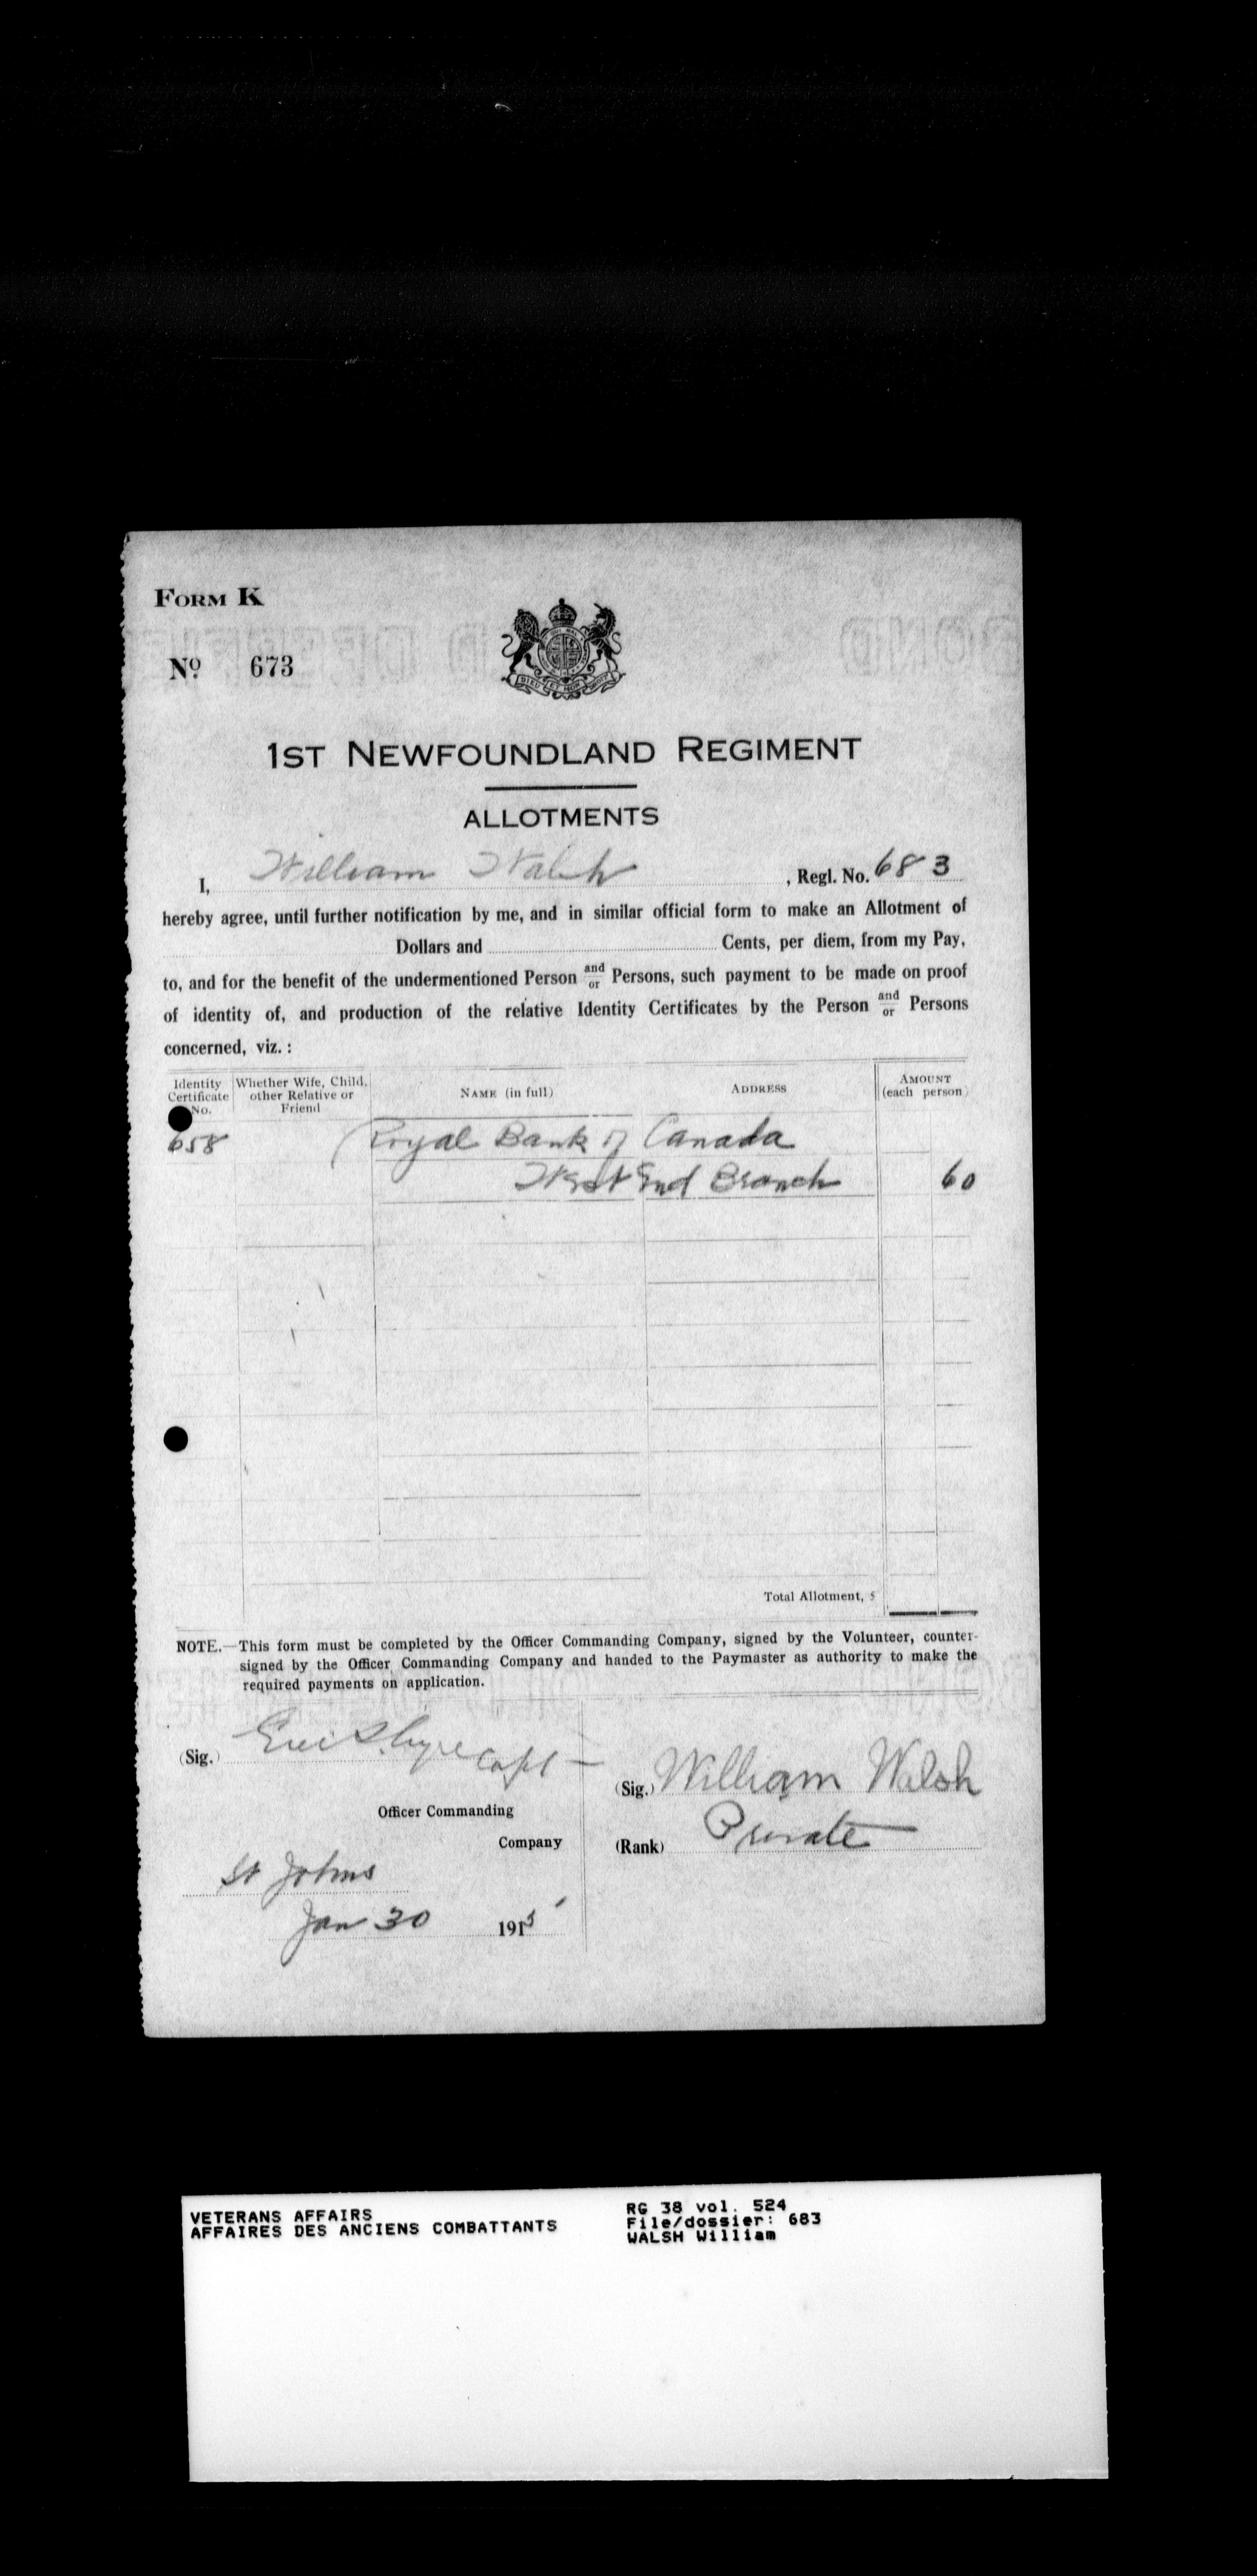 FORM K
No. 673
DIEU ET MON DROIT
1ST NEWFOUNDLAND REGIMENT
ALLOTMENTS
I, William Walsh, Regl. No. 683
hereby agree, until further notification by me, and in similar official form to make an Allotment of
Dollars and Cents, per diem, from my Pay,
to, and for the benefit of the undermentioned Person and/or Persons, such payment to be made on proof
of identity of, and production of the relative Identity Certificates by the Person and/or Persons
concerned, viz. :
Identity Certificate No. Whether Wife, Child, other Relative or Friend NAME (in full) ADDRESS AMOUNT (each person)
658 Royal Bank of Canada
West End Branch 60
Total Allotment, $
NOTE.—This form must be completed by the Officer Commanding Company, signed by the Volunteer, counter-
signed by the Officer Commanding Company and handed to the Paymaster as authority to make the
required payments on application.
(Sig.) Eric S. Ayre Capt
Officer Commanding
Company
(Sig.) William Walsh
(Rank) Private
St Johns
Jan 30 1915
VETERANS AFFAIRS
AFFAIRES DES ANCIENS COMBATTANTS
RG 38 vol. 524
File/dossier: 683
WALSH William